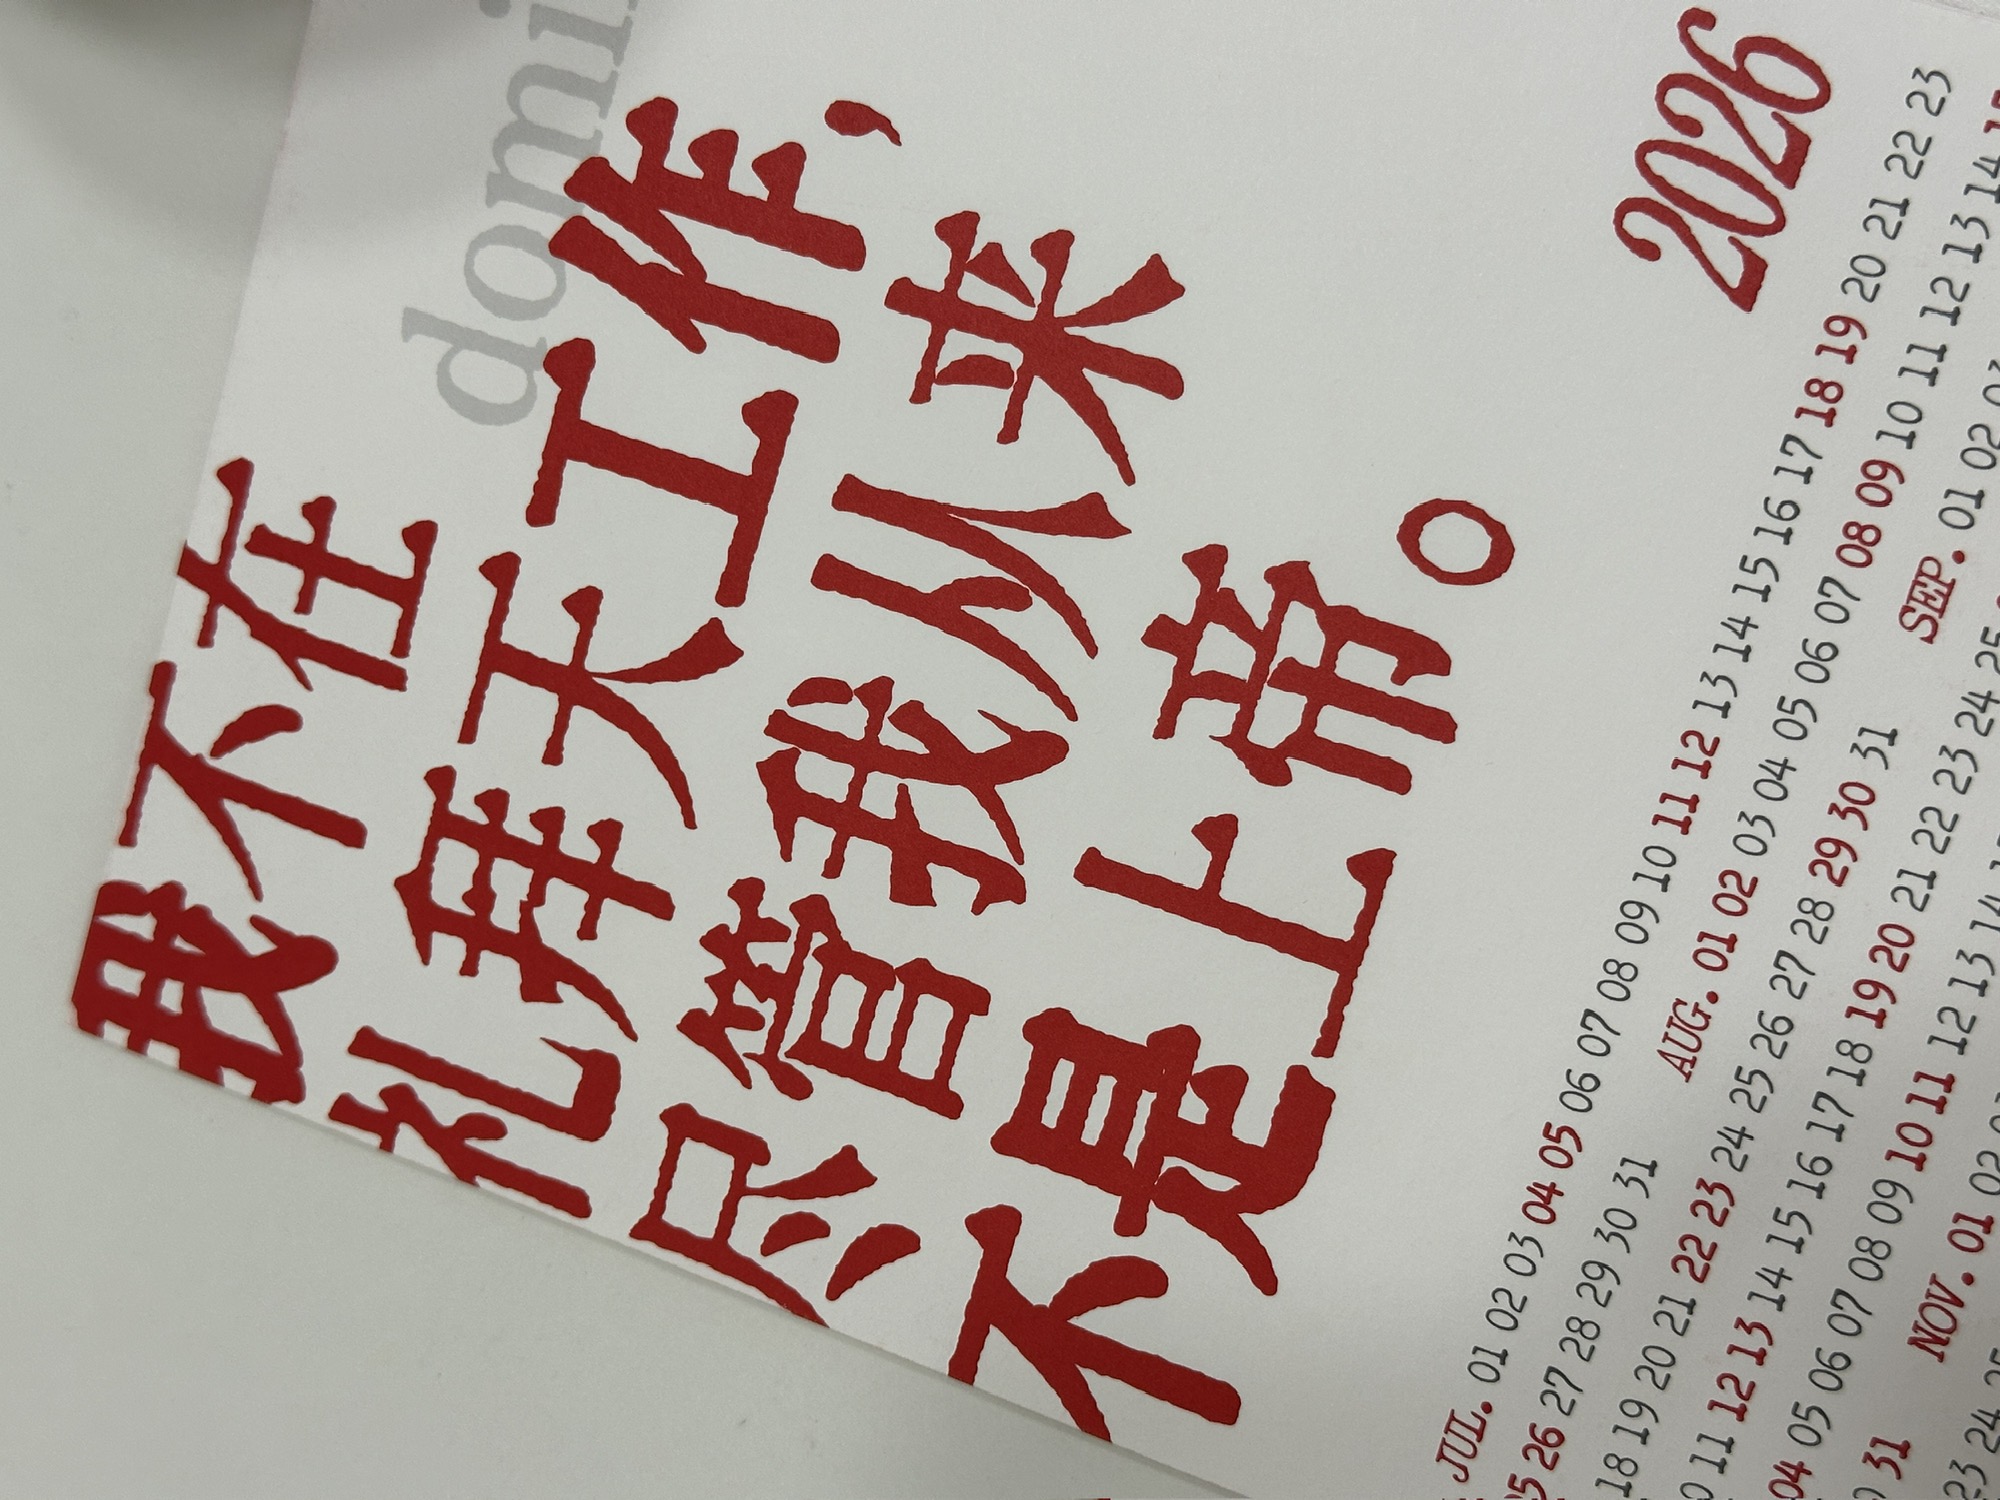 domi
我不在
礼拜天工作，
尽管我从来
不是上帝。
2026
JUL. 01 02 03 04 05 06 07 08 09 10 11 12 13 14 15 16 17 18 19 20 21 22 23
26 27 28 29 30 31 AUG. 01 02 03 04 05 06 07 08 09 10 11 12 13 14 15
18 19 20 21 22 23 24 25 26 27 28 29 30 31 SEP. 01 02 03
11 12 13 14 15 16 17 18 19 20 21 22 23 24 25
04 05 06 07 08 09 10 11 12 13 14
31 NOV. 01 02
23 24